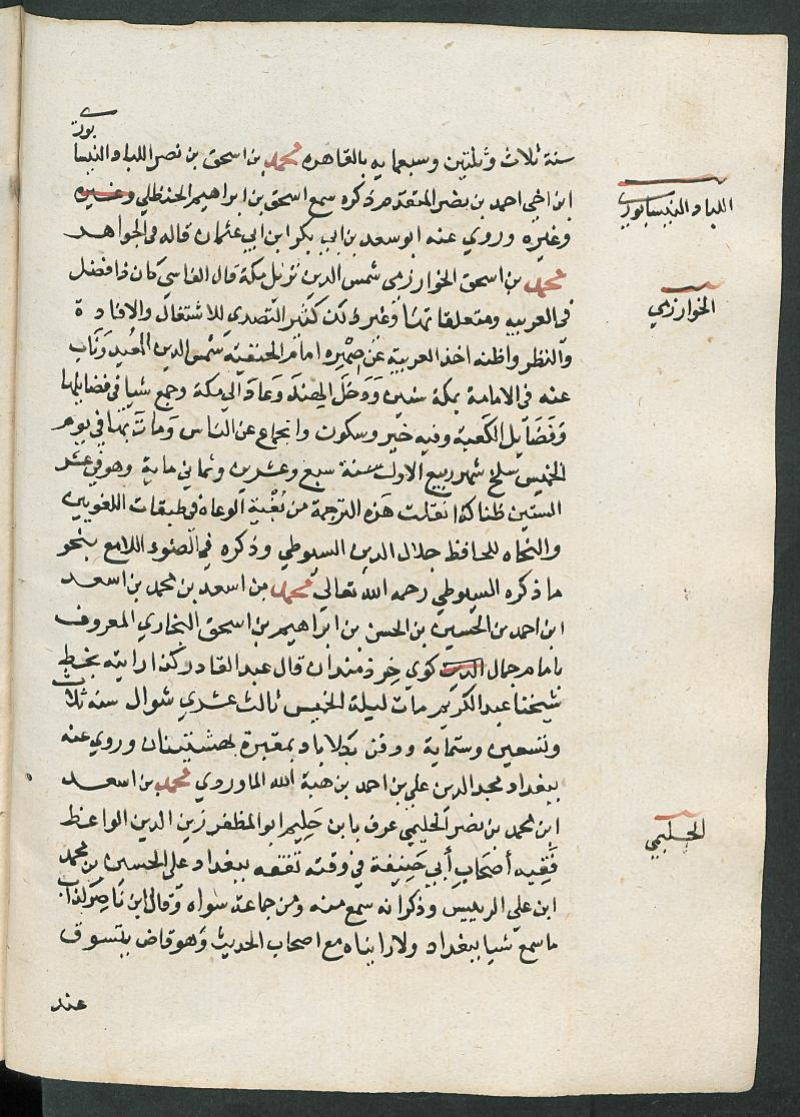 بوري
سنة ثلاث وثلثين وسبعمايه بالقاهره محمد بن اسحق بن نصر اللباد النيسا
ابن اخي احمد بن نصر المتقدم ذكره سمع اسحق بن ابراهيم الحنظلي وغيره
وغيره وروي عنه ابو سعد بن ابي بكر ابن ابي عثمان قاله في الجواهر
محمد بن اسحق الخوارزمي شمس الدين نزيل مكة قال الفاسي كان ذا فضل
في العربيه ومتعلقاتها وغير ذلك كثير التصدي للاشتغال والافادة
والنظر واظنه اخذ العربية عن صهره امام الحنفية شمس الدين المعيد وناب
عنه في الامامة بمكة سنين ودخل الهند وعاد الي مكة وجمع شيا في فضايلها
وفضايل الكعبة وفيه خير وسكون وانجماع عن الناس ومات بمها في يوم
الخميس سلخ شهر ربيع الاول سنة سبع وعشرين وثماني ماية وهو في عشر
الستين ظنا كذا نقلت هذه الترجمة من بغية الوعاة في طبقات اللغويين
والنحاه للحافظ جلال الدين السيوطي وذكره في الضوء اللامع بنحو
ما ذكره السيوطي رحمه الله تعالي محمد بن اسعد بن محمد بن اسعد
ابن احمد بن الحسين بن الحسن بن ابراهيم بن اسحق البخاري المعروف
بامام جمال الدين كوي خرذمندان قال عبد القادر كذا رايته بخط
شيخنا عبد الكريم مات ليلة الخميس ثالث عشري شوال سنه ثلاث
وتسعين وستماية ودفن بكلاباد بمقبرة وروي عنه
ببغداد مجد الدين علي بن احمد بن هبة الله الماوردي محمد بن اسعد
ابن محمد بن نصر الحليمي عرف بابن حليم ابو المظفر زين الدين الواعظ
فقيه أصحاب أبي حنيفة في وقته تفقه ببغداد علي الحسين بن محمد
ابن علي الريس وذكر انه سمع منه ومن جماعة سواه وقال ابن ناصر كذاب
ما سمع شيا ببغداد ولا رايناه مع اصحاب الحديث وهو قاض يتسوق
عند
اللباد النيسابوري
الخوارزمي
الحليمي